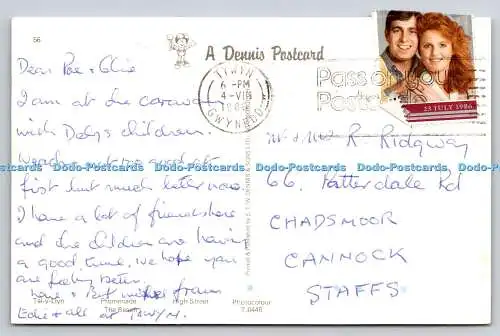 56
A Dennis Postcard
TYWYN
6 - PM
4 - VIII
1986
GWYNEDD
Pass on you
Postcode
23 JULY 1986
Dear Poe + Elsie
I am at the caravan
with Deby's children.
Weather not too good at
first but much better now.
I have a lot of friends here
and the children are having
a good time. We hope you
are feeling better.
Love + Best wishes from
Edie + all at TYWYN.
Mr & Mrs R. Ridgway
66. Patterdale Rd
CHADSMOOR
CANNOCK
STAFFS
Tal-y-Llyn
Promenade
High Street
The Beach
Photocolour
T.0446
Dodo-Postcards Dodo-Postcards Dodo-Postcards Dodo-Postcards Dodo-Postcards Dodo-Postcards